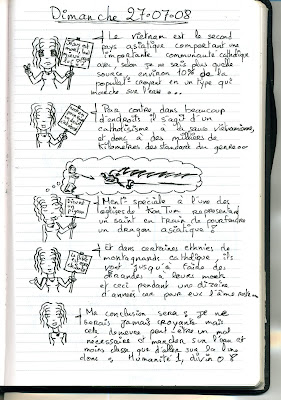 Dimanche 27-07-08
→ Le vietnam est le second
pays asiatique comportant une
importante communauté catholique
avec, selon je ne sais plus quelle
source, environ 10% de la
populat° croyant en un type qui
marche sur l'eau...
→ Par contre, dans beaucoup
d'endroits il s'agit d'un
catholicisme à la sauce
et donc à des milliers de
Kilomètres des standard du genre...
→ Ment° spéciale à l'une des
églises de Kon Tum représentant
un saint en train de pourfendre
un dragon asiatique!
→ Et dans certaines ethnies de
montagnards catholique, ils
vont jusqu'à faire des
offrandes à leurs morts
et ceci pendant une dizaine
d'années car pour eux l'âme reste
→ Ma conclusion sera: je ne
serais jamais croyante mais
cela demeure peut être un mal
nécessaire et marcher sur l'eau est
moins classe que d'aller sur la lune
donc: Humanité 1, divin 0 8